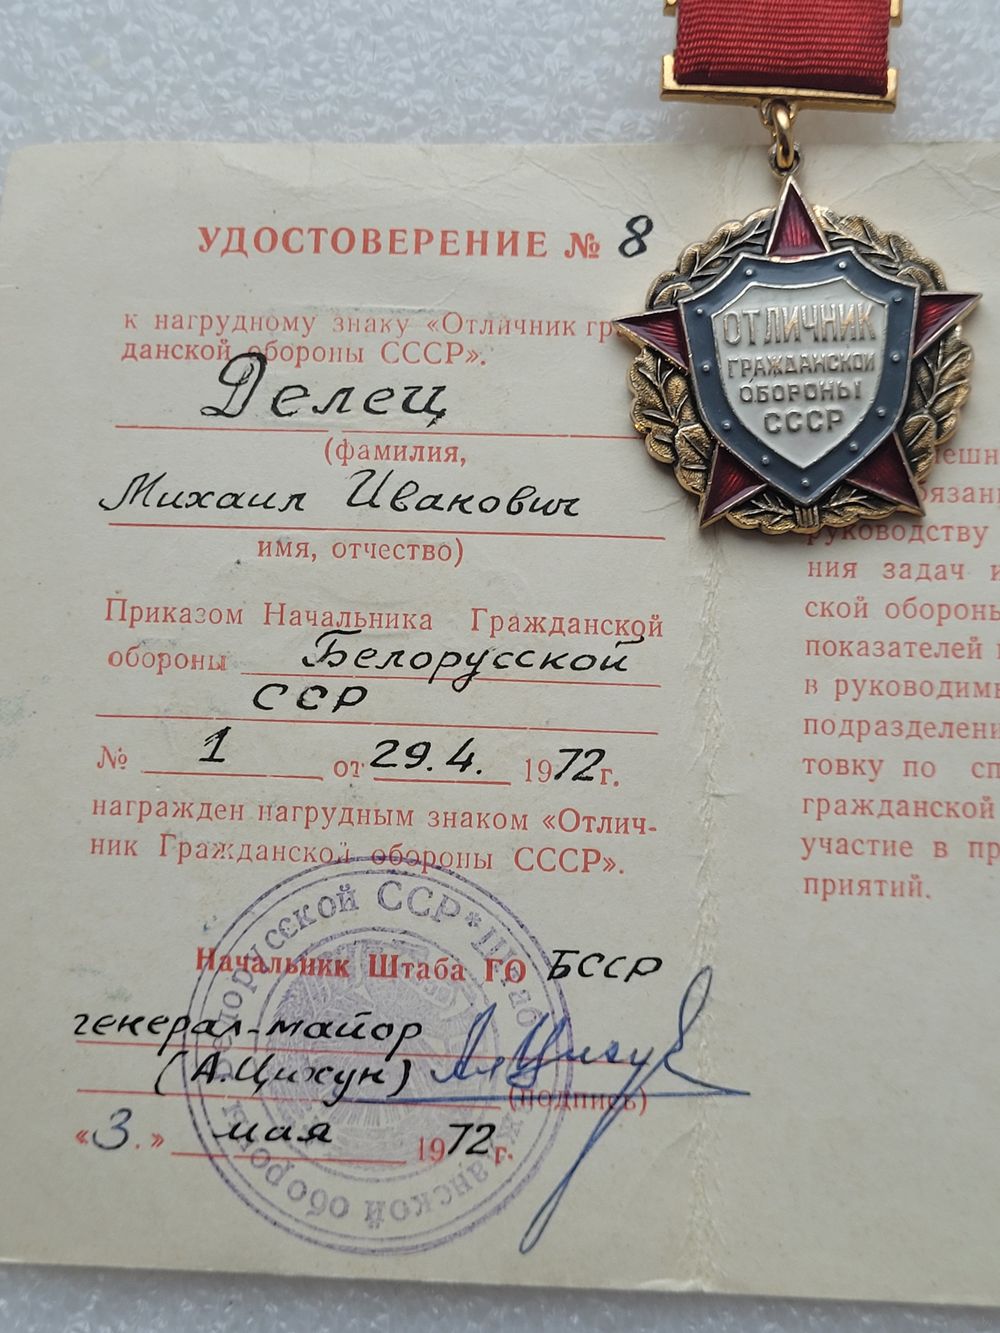 УДОСТОВЕРЕНИЕ № 8
к нагрудному знаку «Отличник гра
данской обороны СССР».
Делец
(фамилия,
Михаил Иванович
имя, отчество)
Приказом Начальника Гражданской
обороны Белорусской
ССР
№ 1 от 29.4. 1972г.
награжден нагрудным знаком «Отлич-
ник Гражданской обороны СССР».
Начальник Штаба ГО БССР
генерал-майор
(А.Цихун)
(подпись)
«3.» мая 1972г.
ОТЛИЧНИК
ГРАЖДАНСКОЙ
ОБОРОНЫ
СССР
руководству
ния задач
ской обороны
показателей
в руководим
подразделени
товку по сп
гражданской
участие в пр
приятий.
Белорусской ССР * Штаб
Гражданской обороны